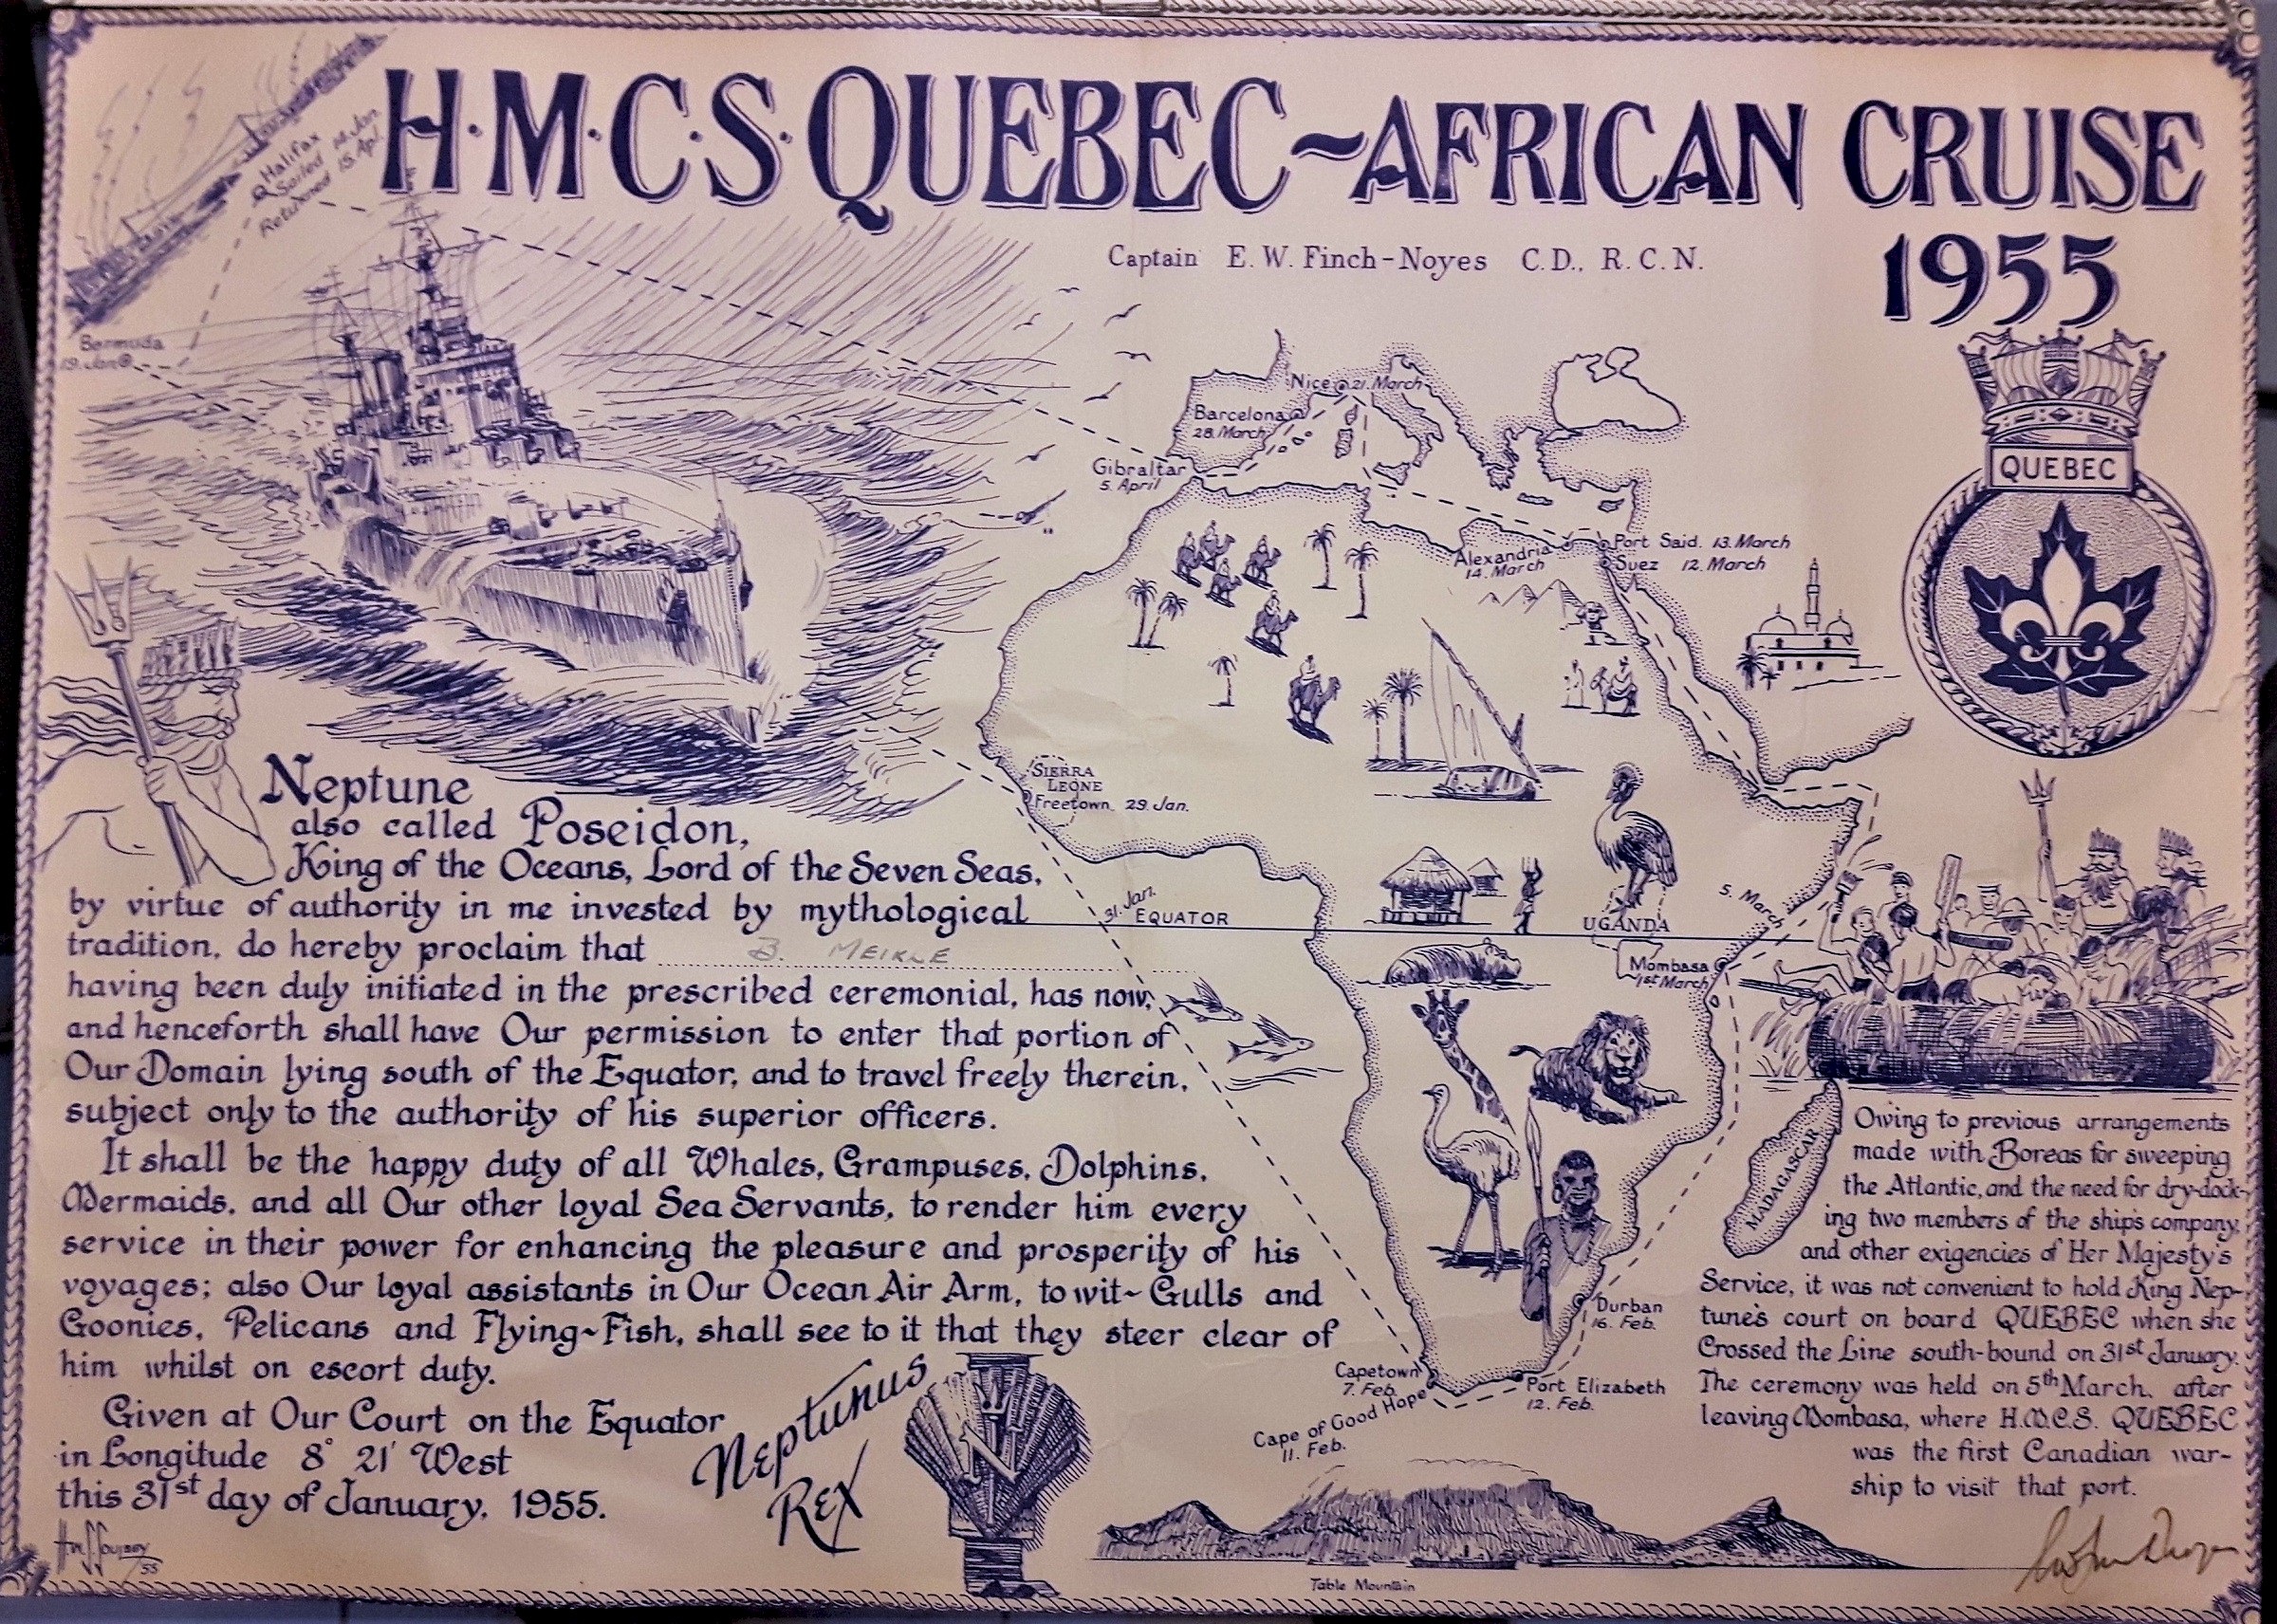 H·M·C·S·QUEBEC~AFRICAN CRUISE
1955
Captain E. W. Finch-Noyes C.D., R.C.N.
Halifax
Sailed 14. Jan.
Returned 15. Apl.
Bermuda
19. Jan
Nice 21. March
Barcelona
28. March
Gibraltar
5. April
Alexandria
14. March
Port Said. 13. March
Suez 12. March
QUEBEC
SIERRA
LEONE
Freetown. 29 Jan.
31. Jan.
EQUATOR
UGANDA
5. March
Mombasa
1st March
MADAGASCAR
Durban
16. Feb.
Port Elizabeth
12. Feb.
Capetown
7. Feb.
Cape of Good Hope
11. Feb.
Table Mountain
Neptune
also called Poseidon,
King of the Oceans, Lord of the Seven Seas,
by virtue of authority in me invested by mythological
tradition, do hereby proclaim that B. MEIKLE
having been duly initiated in the prescribed ceremonial, has now,
and henceforth shall have Our permission to enter that portion of
Our Domain lying south of the Equator, and to travel freely therein,
subject only to the authority of his superior officers.
It shall be the happy duty of all Whales, Grampuses, Dolphins,
Mermaids, and all Our other loyal Sea Servants, to render him every
service in their power for enhancing the pleasure and prosperity of his
voyages; also Our loyal assistants in Our Ocean Air Arm, to wit~ Gulls and
Goonies, Pelicans and Flying~Fish, shall see to it that they steer clear of
him whilst on escort duty.
Given at Our Court on the Equator
in Longitude 8° 21' West
this 31st day of January, 1955.
Neptunus
Rex
N
/55
Owing to previous arrangements
made with Boreas for sweeping
the Atlantic, and the need for dry-dock-
ing two members of the ship's company,
and other exigencies of Her Majesty's
Service, it was not convenient to hold King Nep-
tune's court on board QUEBEC when she
Crossed the Line south-bound on 31st January.
The ceremony was held on 5th March, after
leaving Mombasa, where H.M.C.S. QUEBEC
was the first Canadian war-
ship to visit that port.